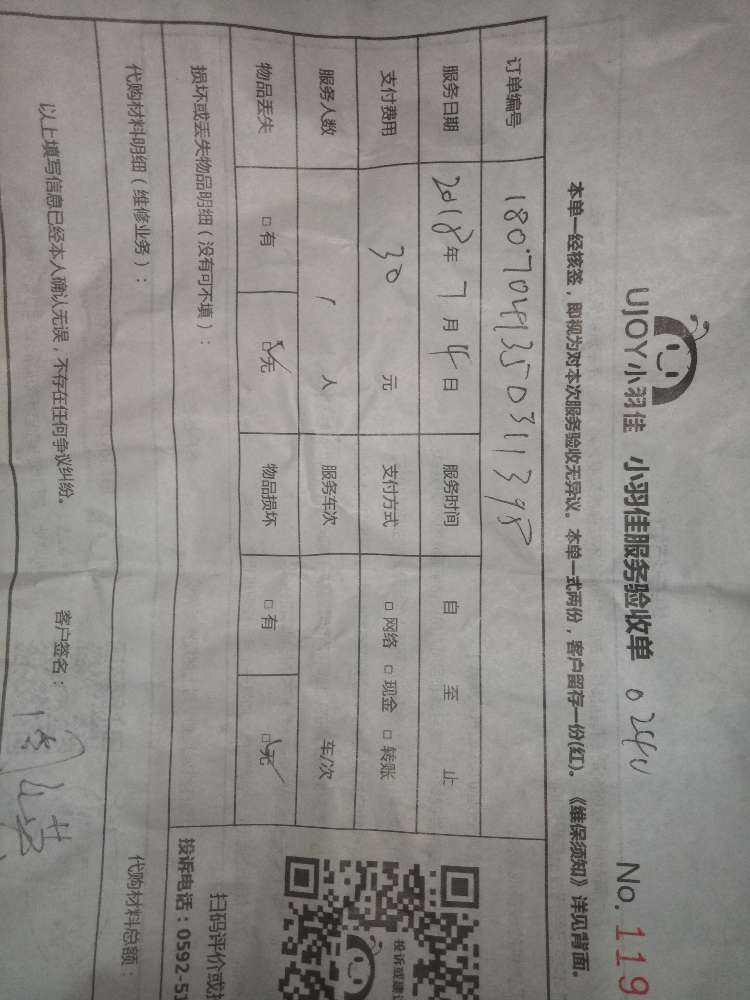 UJOY小羽佳 小羽佳服务验收单 0240 No. 119
本单一经核签，即视为对本次服务验收无异议。本单一式两份，客户留存一份(红)。《维保须知》详见背面。
订单编号 180704135031398
服务日期 2018年7月4日 服务时间 自 至 止
支付费用 30 元 支付方式 □网络 □现金 □转账
服务人数 1 人 服务车次 车/次
物品丢失 □有 □无 物品损坏 □有 □无
损坏或丢失物品明细（没有可不填）：
投诉或建议
扫码评价或投
投诉电话：0592-51
代购材料明细（维修业务）： 代购材料总额：
以上填写信息已经本人确认无误，不存在任何争议纠纷。 客户签名：